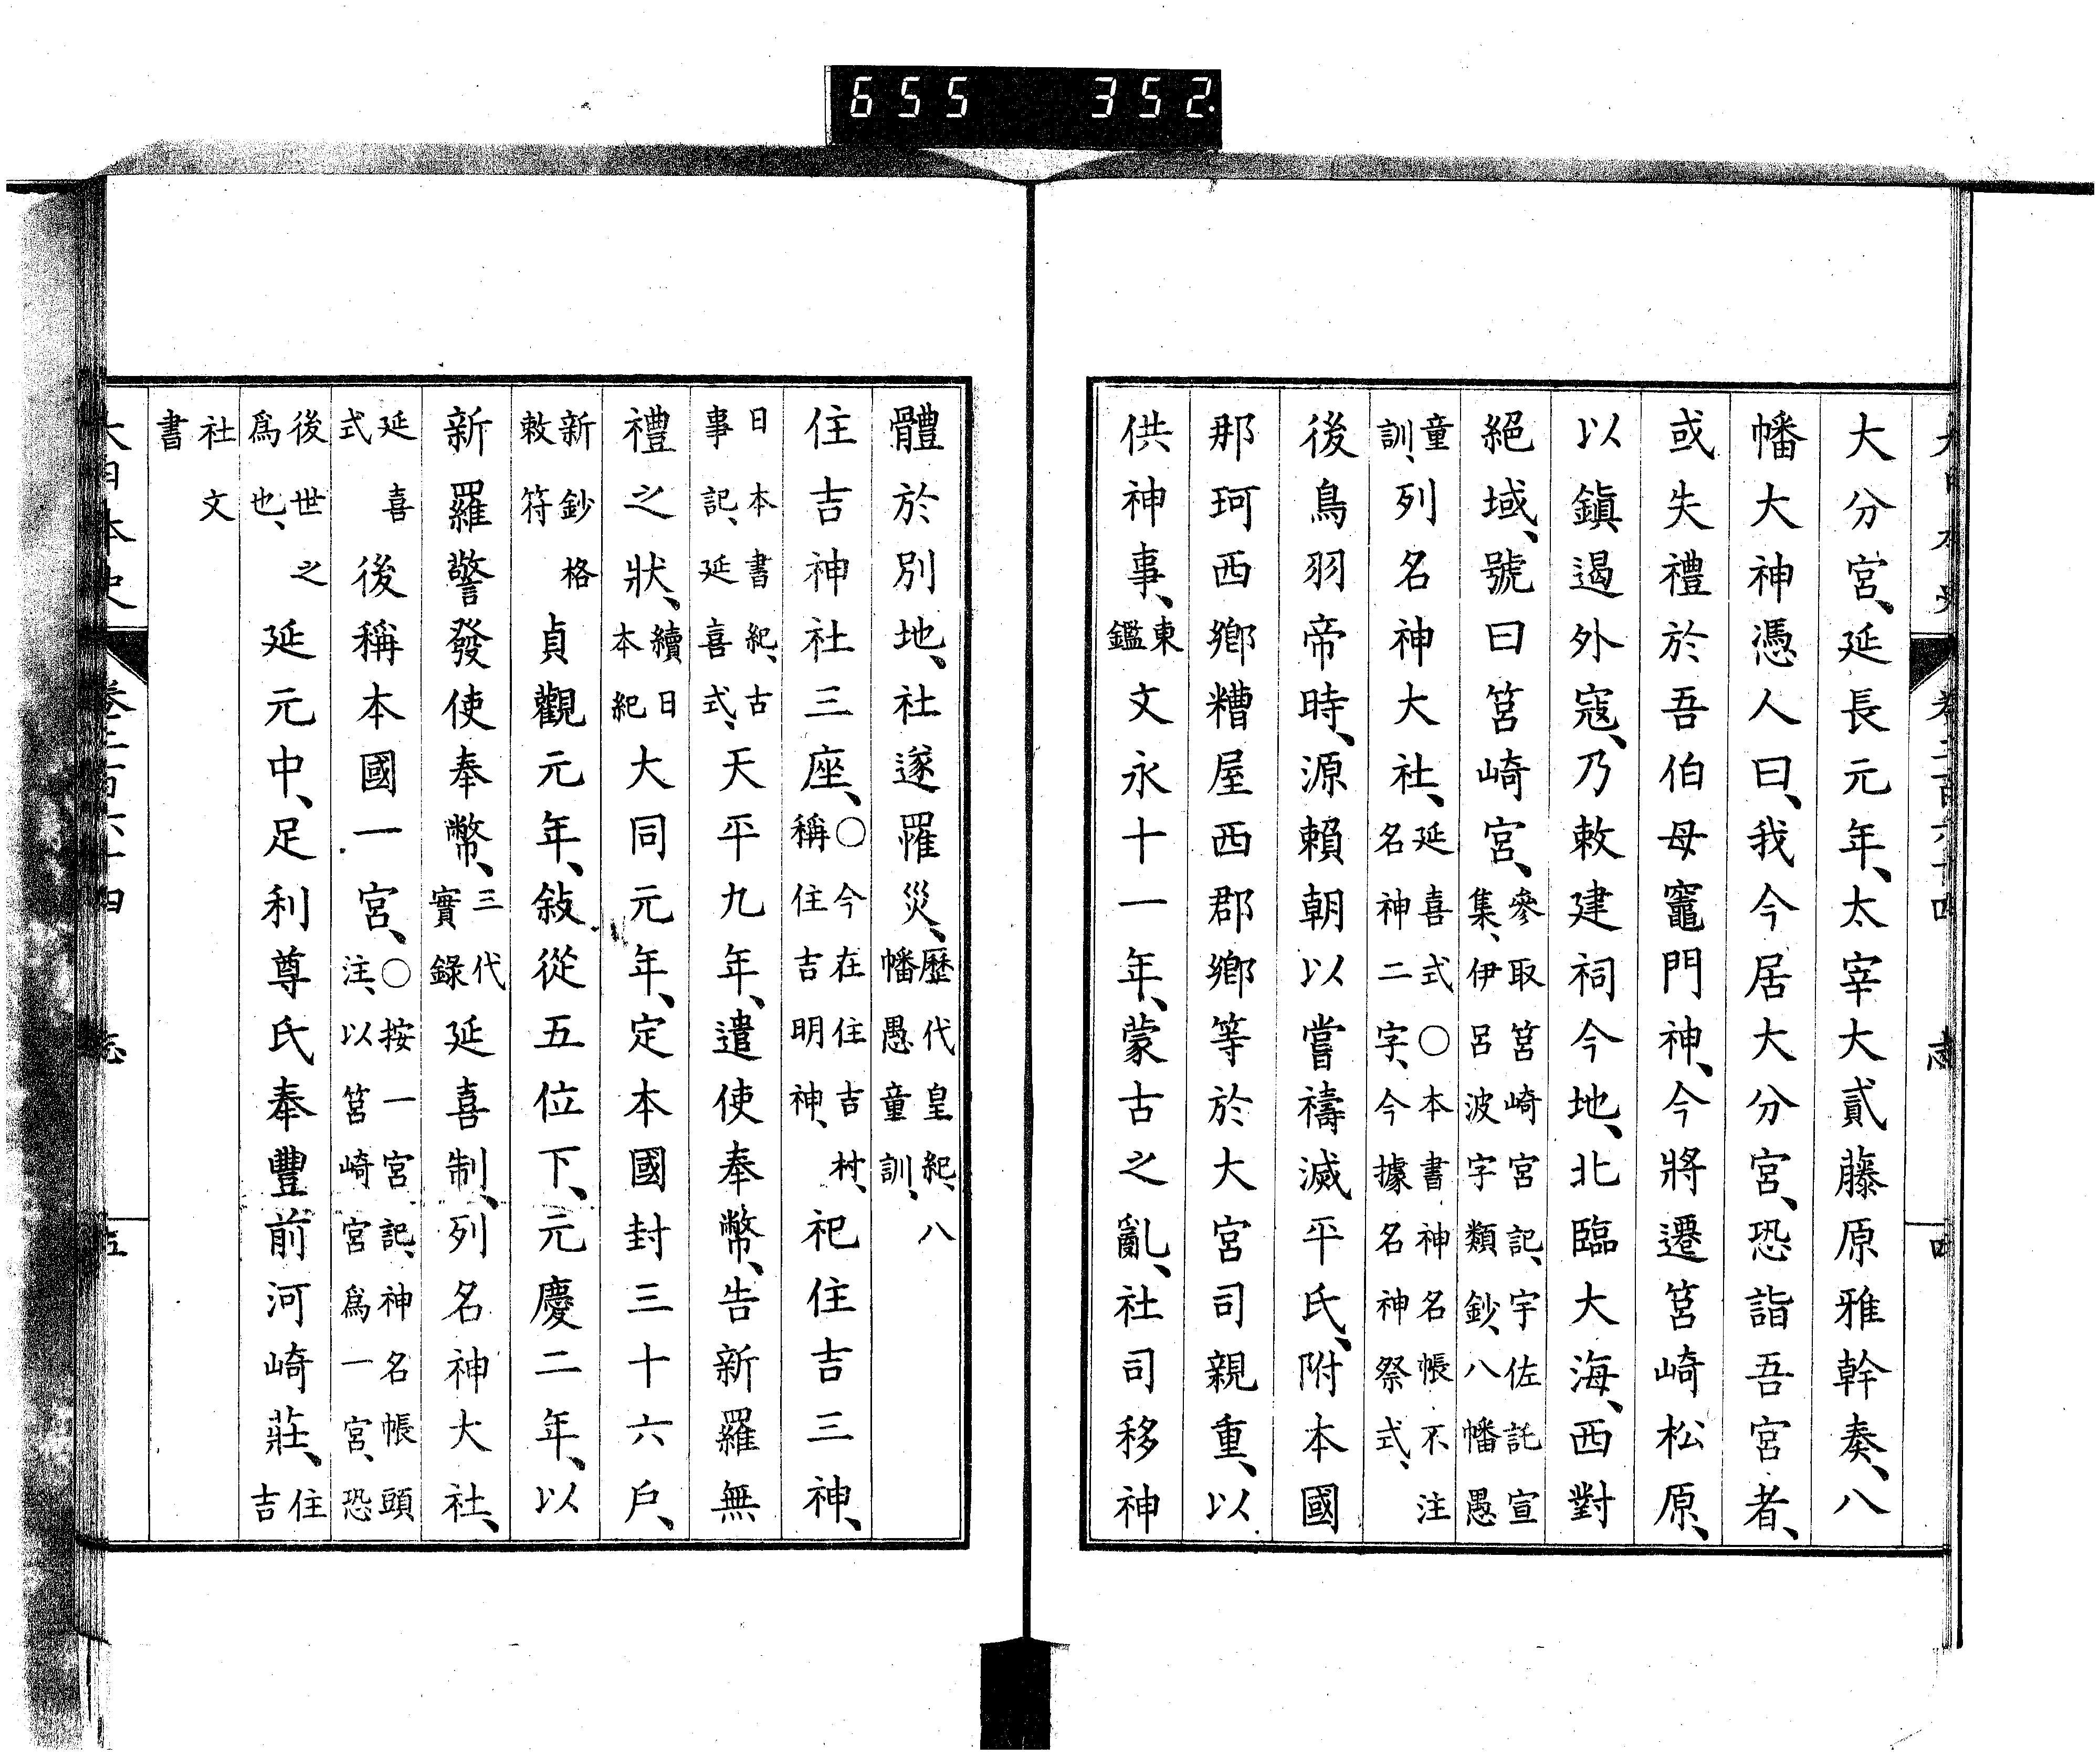 655 352
大分宮、延長元年、太宰大貳藤原雅幹奏、八
幡大神憑人曰、我今居大分宮、恐詣吾宮者、
或失禮於吾伯母竈門神、今將遷筥崎松原、
以鎭遏外寇、乃敕建祠今地、北臨大海、西對
絕域、號曰筥崎宮、參取筥崎宮記、宇佐託宣集、伊呂波字類鈔、八幡愚
童訓、列名神大社、延喜式〇本書神名帳不注名神二字、今據名神祭式、
後鳥羽帝時、源賴朝以嘗禱滅平氏、附本國
那珂西鄉糟屋西郡鄉等於大宮司親重、以
供神事、東鑑文永十一年、蒙古之亂、社司移神
體於別地、社遂罹災、歷代皇紀、八幡愚童訓、
住吉神社三座、〇今在住吉村、稱住吉明神、祀住吉三神、
日本書紀、古事記、延喜式、天平九年、遣使奉幣、告新羅無
禮之狀、續日本紀大同元年、定本國封三十六戶、
新鈔格敕符貞觀元年、敍從五位下、元慶二年、以
新羅警發使奉幣、三代實錄延喜制、列名神大社、
延喜式後稱本國一宮、〇按一宮記、神名帳頭注、以筥崎宮爲一宮、恐
後世之爲也、延元中、足利尊氏奉豐前河崎莊、住吉
社文書
大日本史 卷二百六十四 志 五